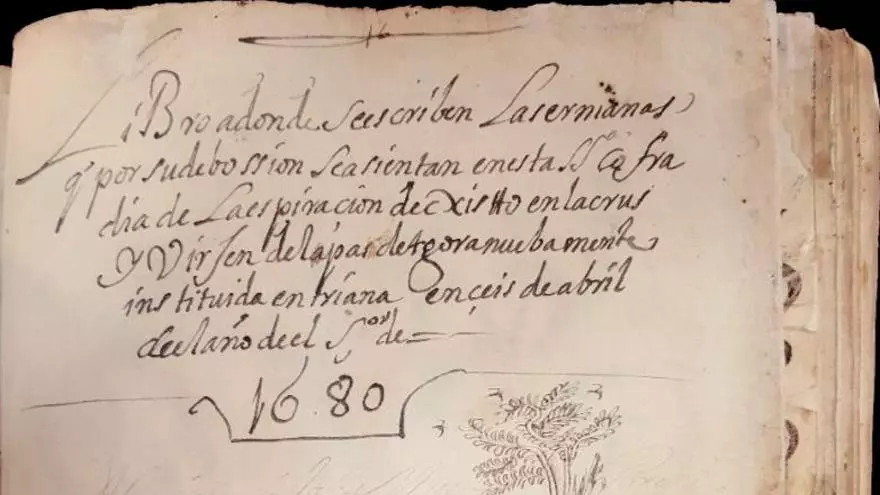 16
LiBro adonde se escriben Las ermanas
q̃ por su debossion se asientan en esta SSᵃ Cofra
dia de La espiraçion de Cxisto en la crus
y Virgen de la pas de agora nuebamente
instituida en triana en çeis de abril
de el año de el Sᵒʳ de
16.80